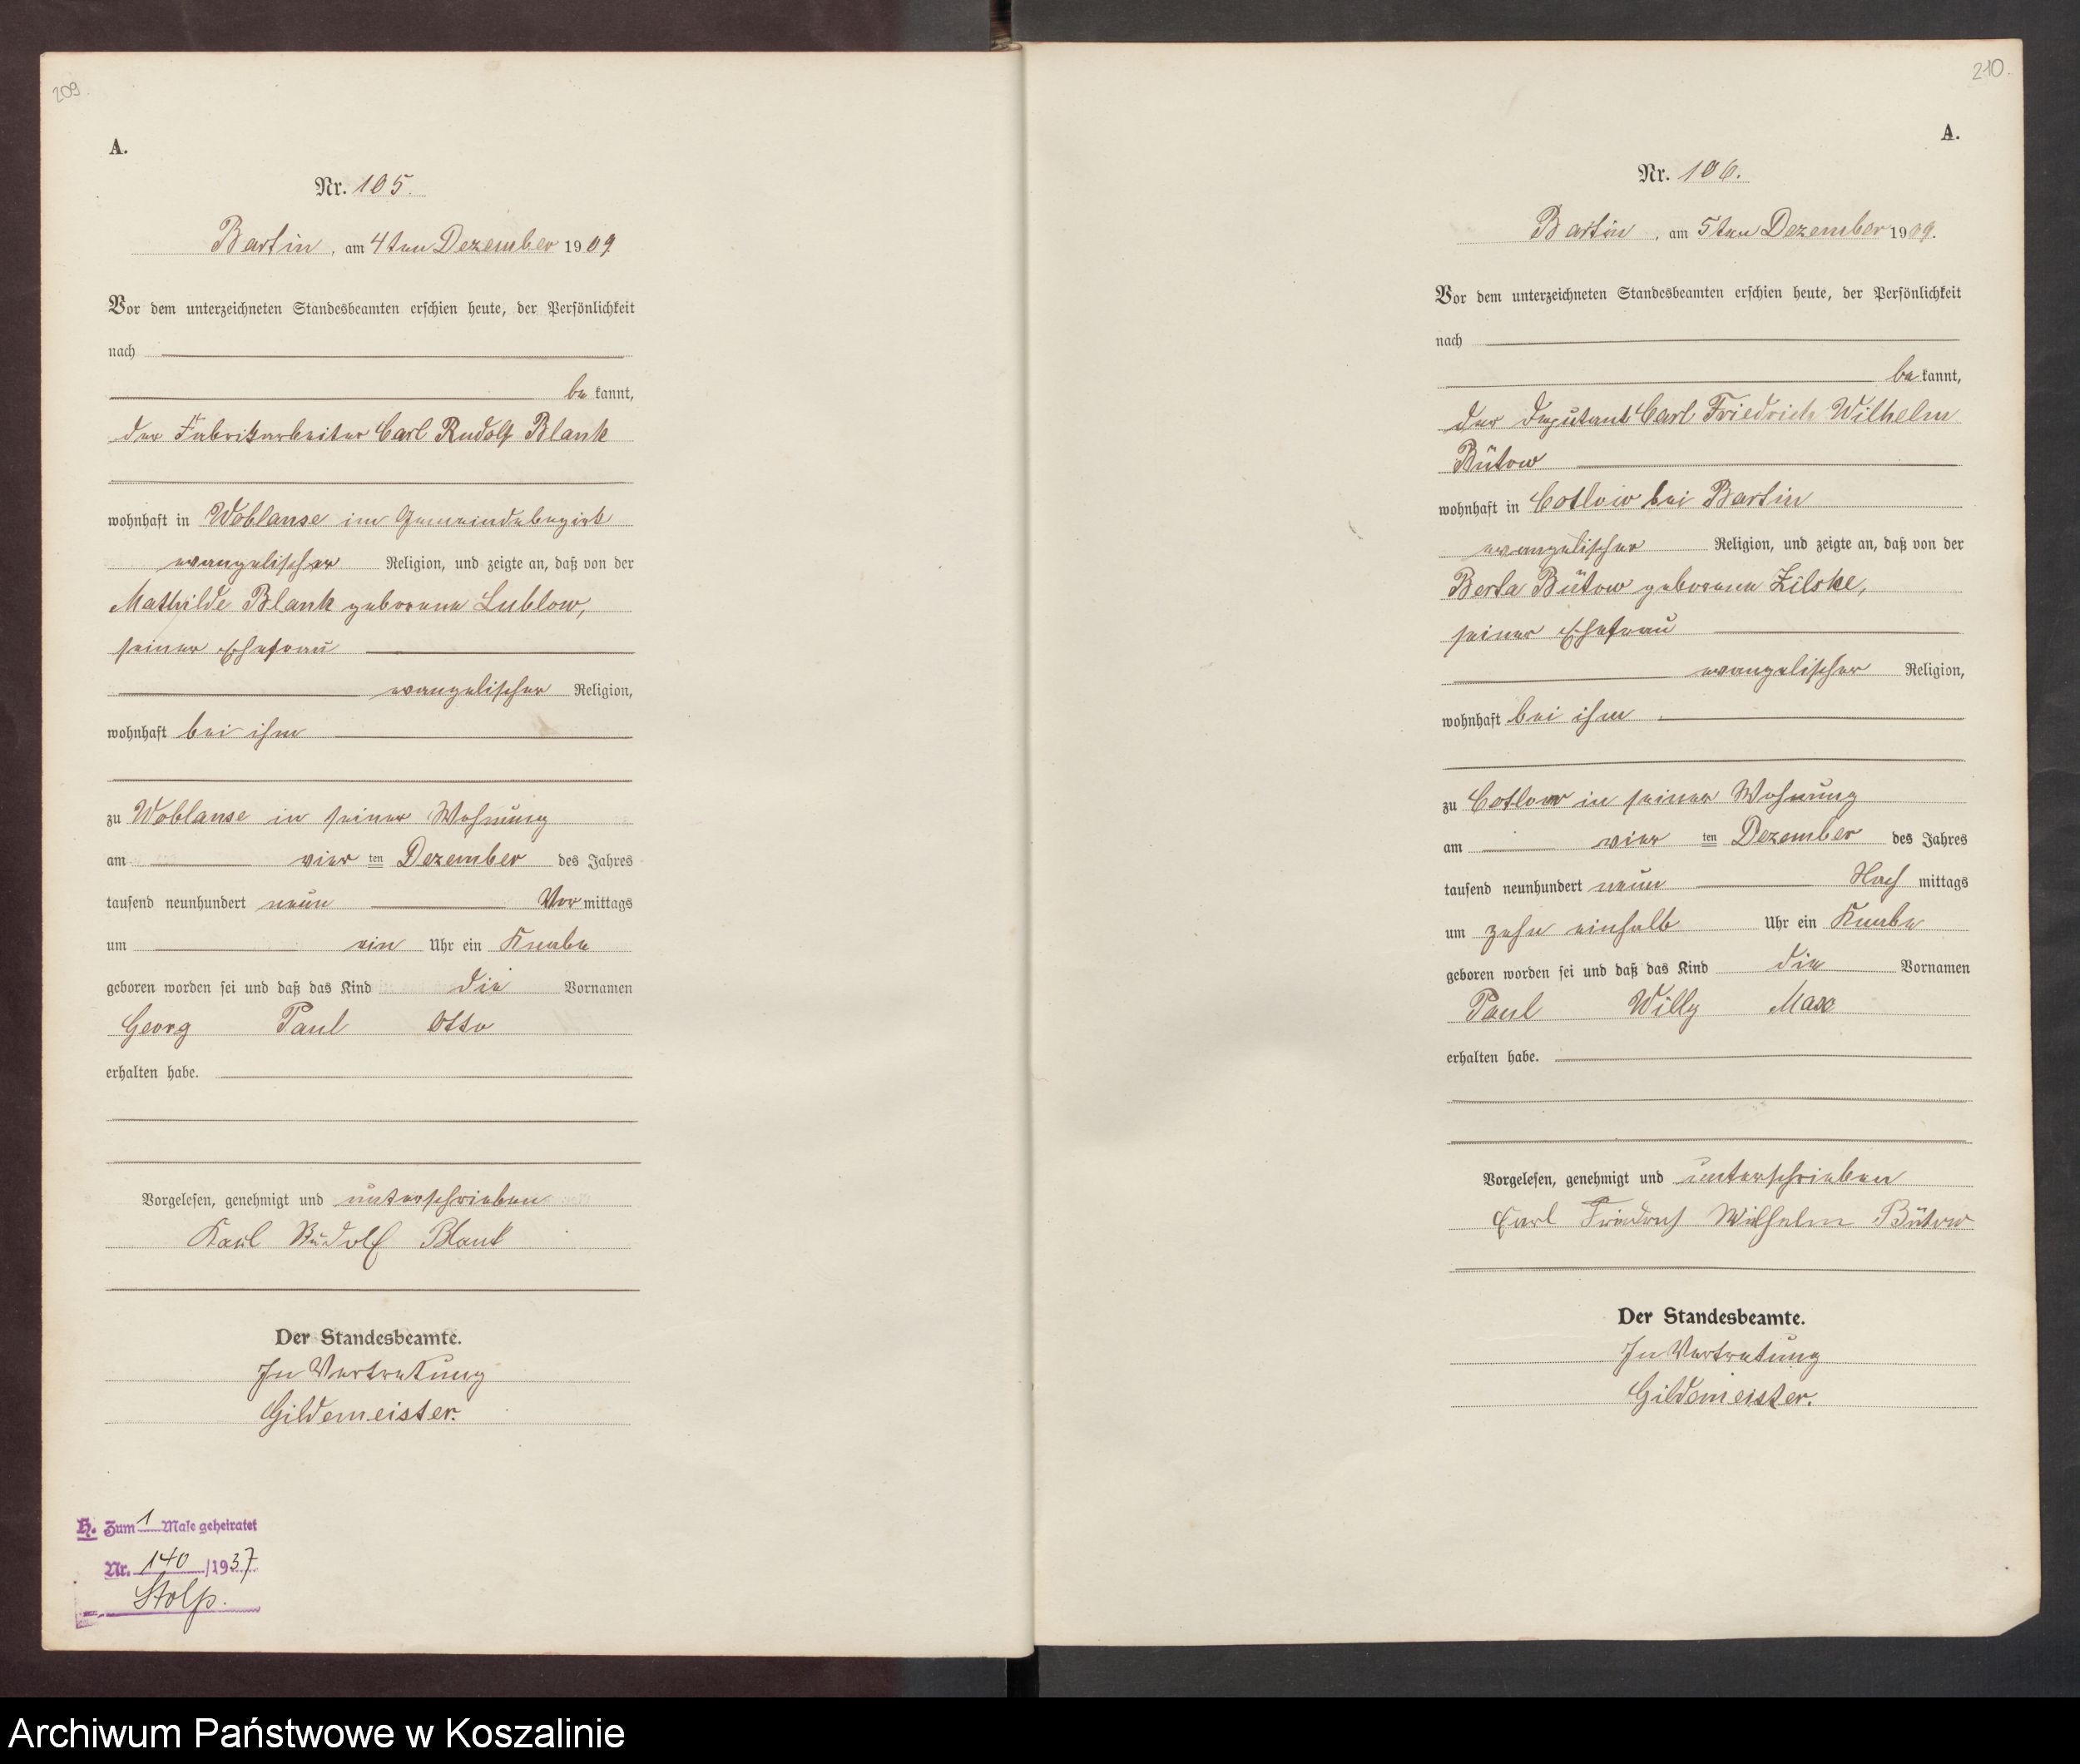 209.
A.
Nr. 105.
Bartin, am 4ten Dezember 1909
Vor dem unterzeichneten Standesbeamten erschien heute, der Persönlichkeit
nach
be kannt,
der Fabrikarbeiter Carl Rudolf Blank
wohnhaft in Woblanse im Gemeindebezirk
evangelischer Religion, und zeigte an, daß von der
Mathilde Blank geborene Lublow,
seiner Ehefrau
evangelischer Religion,
wohnhaft bei ihm
zu Woblanse in seiner Wohnung
am vier ten Dezember des Jahres
tausend neunhundert neun Vor mittags
um ein Uhr ein Knabe
geboren worden sei und daß das Kind die Vornamen
Georg Paul Otto
erhalten habe.
Vorgelesen, genehmigt und unterschrieben
Karl Rudolf Blank
Der Standesbeamte.
In Vertretung
Gildemeister.
H. Zum 1 Male geheiratet
Nr. 140 /1937
Stolp.
210.
A.
Nr. 106.
Bartin, am 5ten Dezember 1909.
Vor dem unterzeichneten Standesbeamten erschien heute, der Persönlichkeit
nach
be kannt,
der Deputant Carl Friedrich Wilhelm
Bütow
wohnhaft in Cotlow bei Bartin
evangelischer Religion, und zeigte an, daß von der
Berta Bütow geborene Zilske,
seiner Ehefrau
evangelischer Religion,
wohnhaft bei ihm
zu Cotlow in seiner Wohnung
am vier ten Dezember des Jahres
tausend neunhundert neun Nach mittags
um zehn einhalb Uhr ein Knabe
geboren worden sei und daß das Kind die Vornamen
Paul Willy Max
erhalten habe.
Vorgelesen, genehmigt und unterschrieben
Carl Friedrich Wilhelm Bütow
Der Standesbeamte.
In Vertretung
Gildemeister.
Archiwum Państwowe w Koszalinie